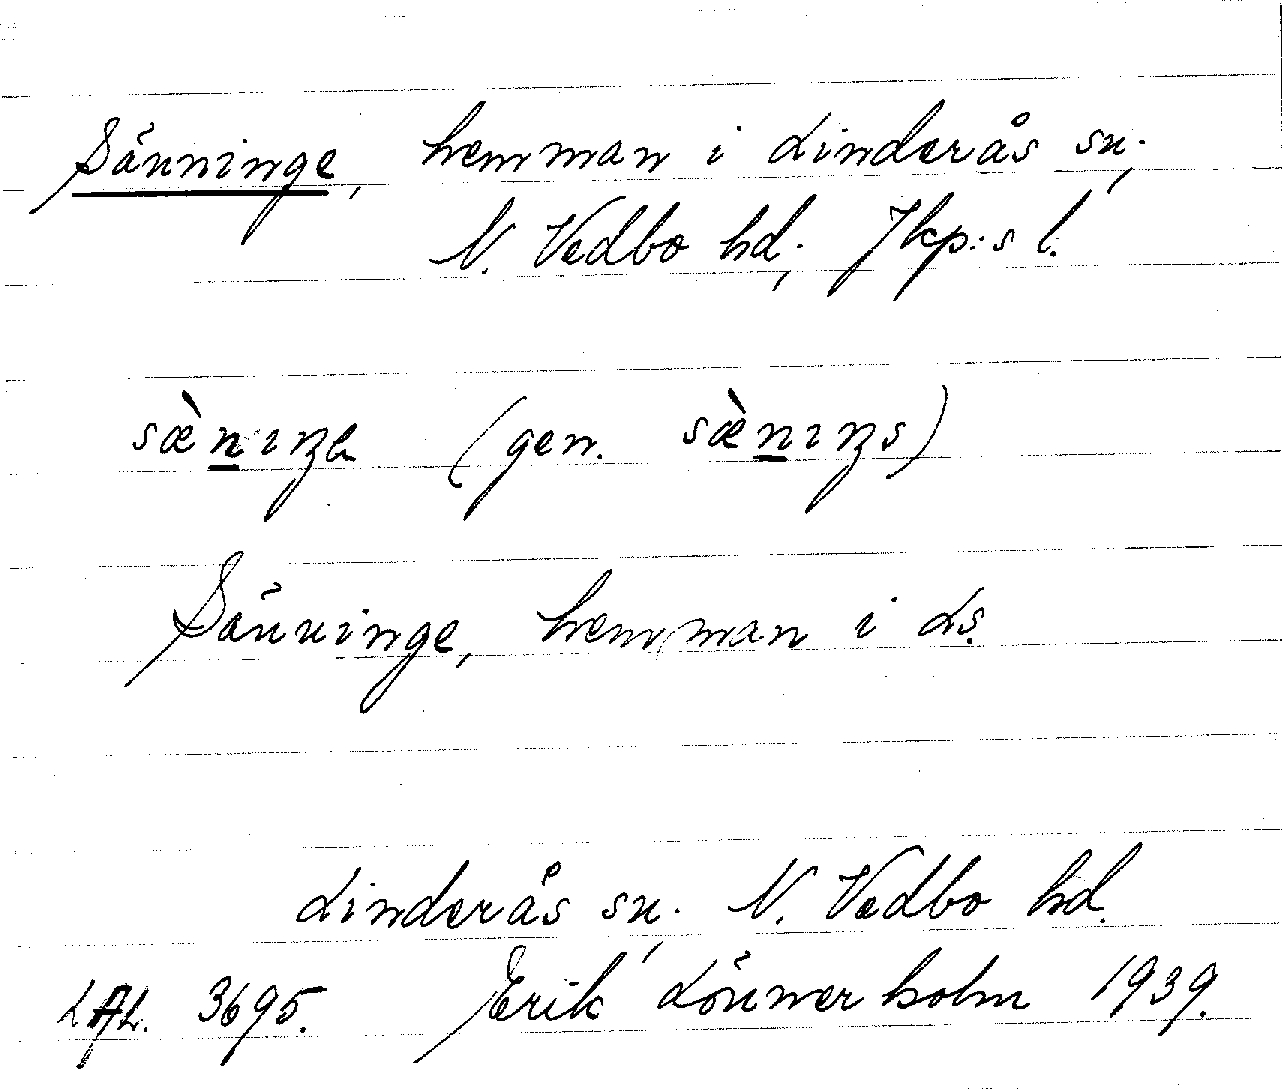 Sänninge, hemman i Linderås sn.,
N. Vedbo hd., Jkp:s l.
sæ̀nıŋɛ (gen. sæ̀nıŋs)
Sänninge, hemman i Ls.
Linderås sn., N. Vedbo hd.
LAL. 3695. Erik Lönnerholm 1939.